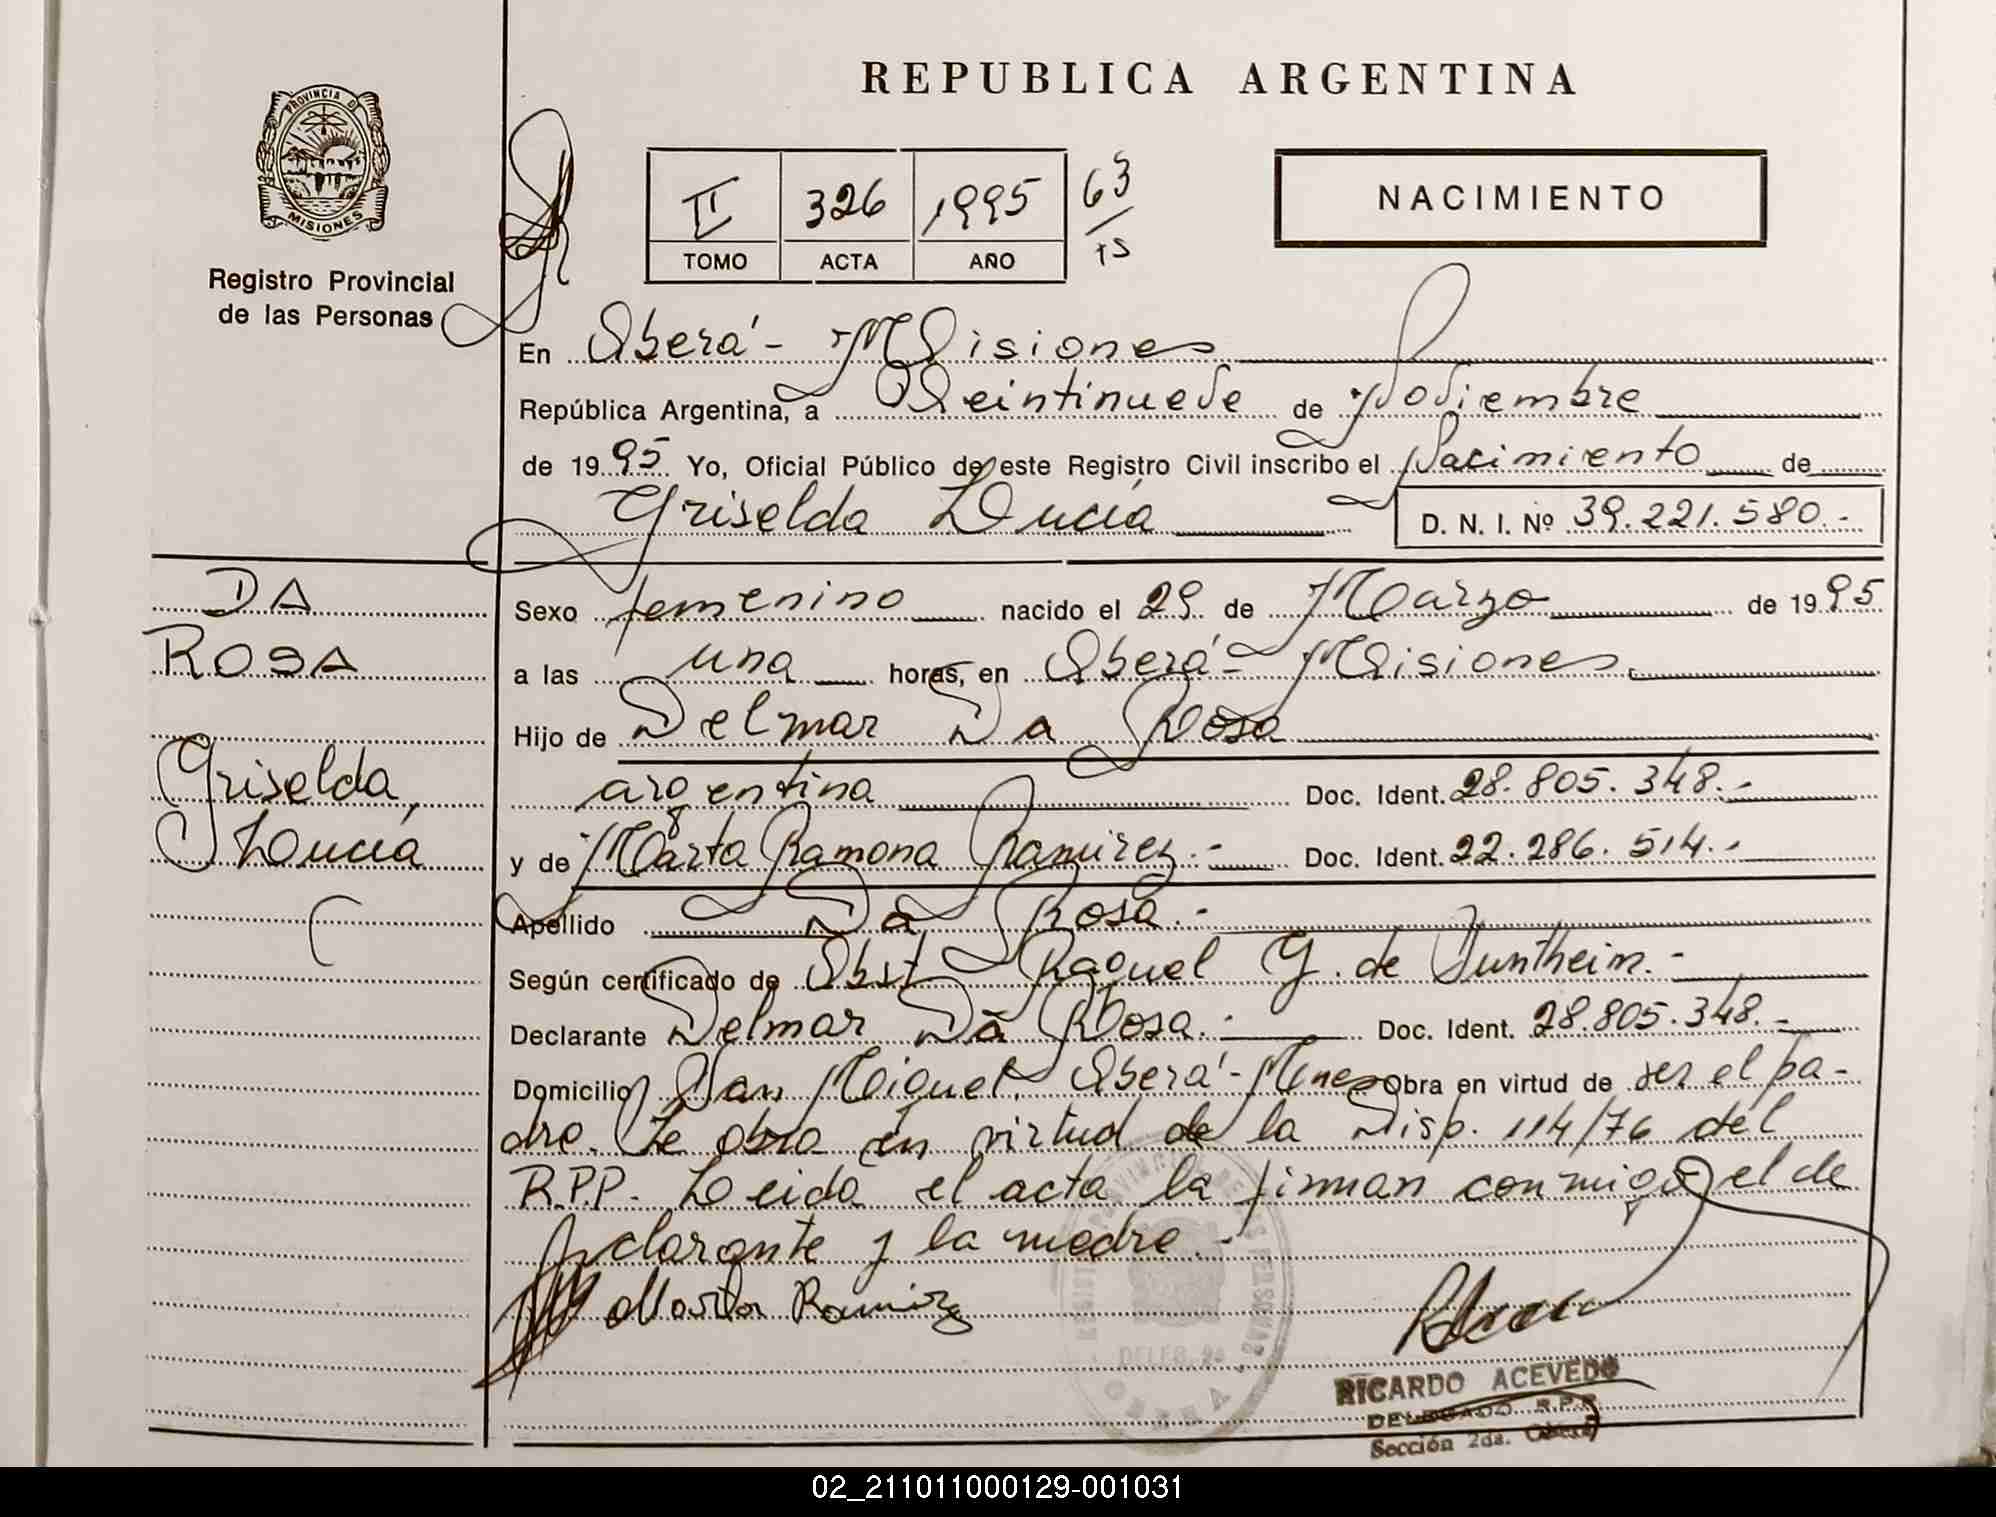 REPUBLICA ARGENTINA
PROVINCIA D
MISIONES
Registro Provincial
de las Personas
II 326 1995 63
TOMO ACTA AÑO
NACIMIENTO
En Oberá - Misiones
República Argentina, a Veintinueve de Noviembre
de 1995 Yo, Oficial Público de este Registro Civil inscribo el Nacimiento de
Griselda Lucía D. N. I. Nº 39.221.580.-
DA
ROSA
Griselda,
Lucía
Sexo femenino nacido el 29 de Marzo de 1995
a las una horas, en Oberá - Misiones
Hijo de Delmar Da Rosa
argentina Doc. Ident. 28.805.348.-
y de Marta Ramona Ramirez.- Doc. Ident. 22.286.514.-
Apellido Da Rosa.-
Según certificado de Obst Raquel G. de Juntheim.-
Declarante Delmar Da Rosa.- Doc. Ident. 28.805.348.-
Domicilio San Miguel. Oberá - Mnes Obra en virtud de ser el pa-
dre. Se obra en virtud de la Disp. 114/76 del
R.P.P. Leida el acta la firman conmigo el de
clarante y la madre.-
Marta Ramirez
RICARDO ACEVEDO
DELEGADO R.P.P.
Sección 2da. Oberá
02_211011000129-001031